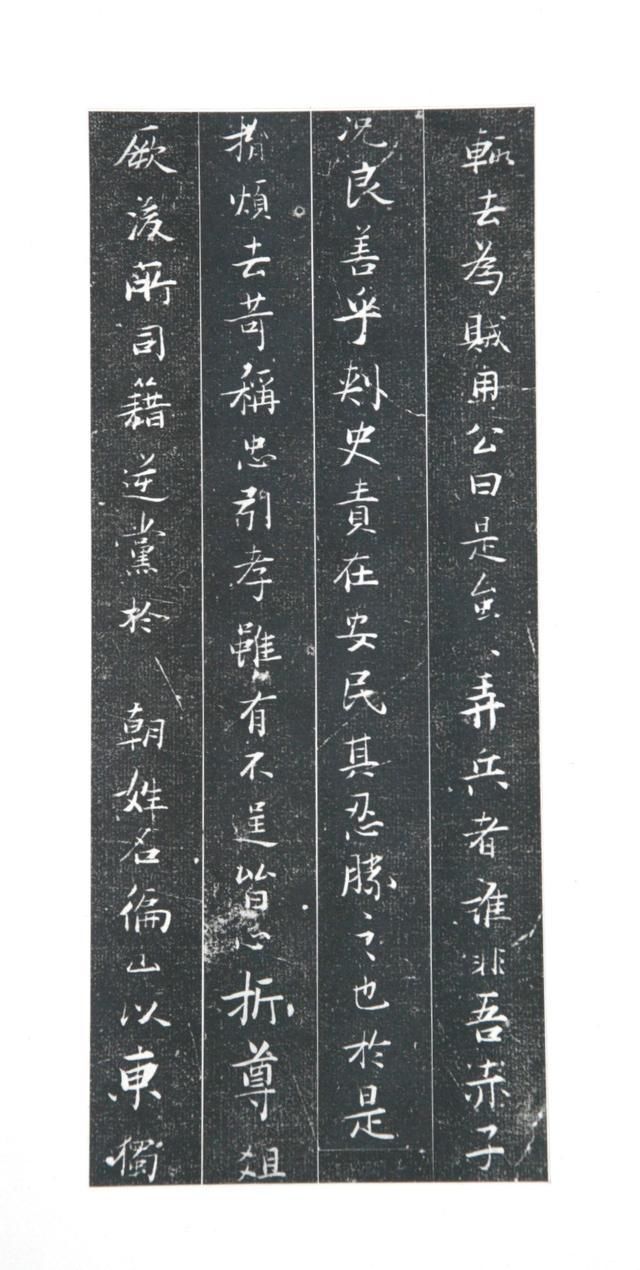 輒去為賊用公曰是無、弄兵者誰非吾赤子
况良善乎刺史責在安民其忍勝之也於是
煩去苛稱忠引孝雖有不逞皆心折尊俎
厥後所司籍逆黨於 朝姓名徧山以東獨